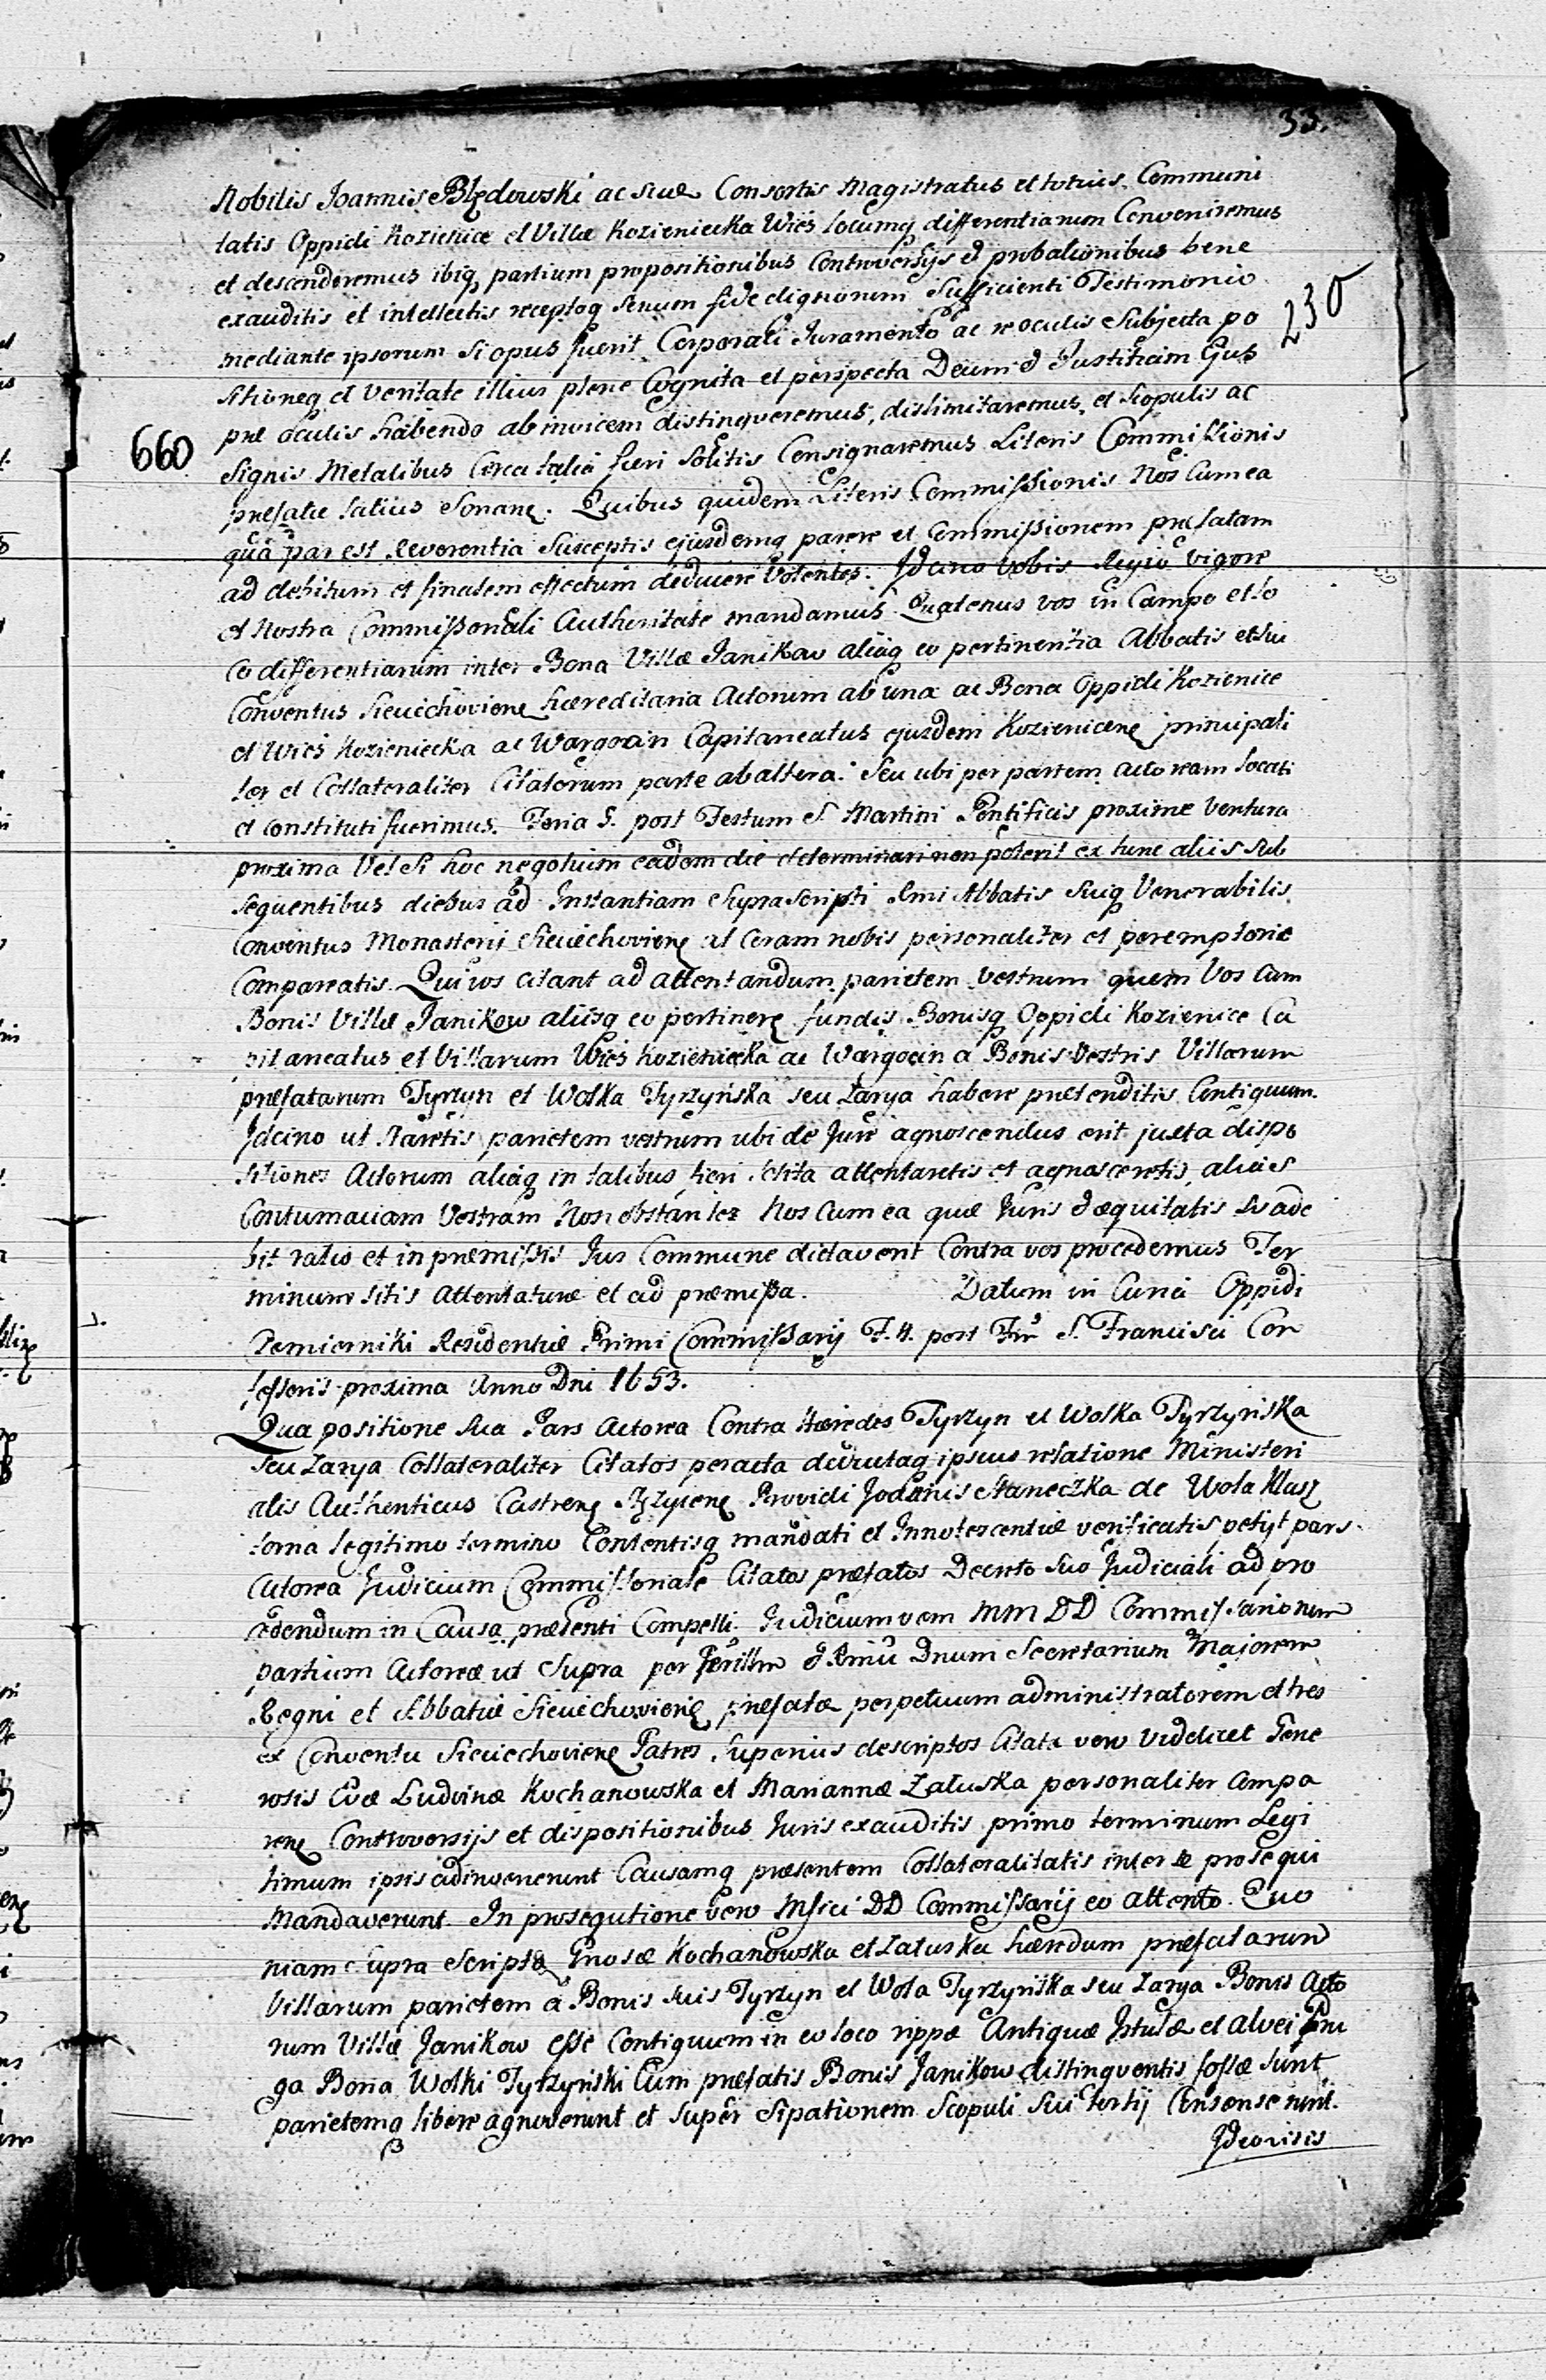 33.
Nobilis Joannis Błędowski ac suæ Consortis Magistratus et totius Communi
tatis Oppidi Kozienice et Villæ Kozieniecka Wieś locumq differentiarum Conveniremus
et descenderemus ibiq partium propositionibus Controversijs et probationibus bene
exauditis et intellectis receptoq senum fide dignorum sufficienti Testimonio
230
mediante ipsorum si opus fuerit Corporali Juramento ac re oculis Subjecta po
sitioneq et veritate illius plene Cognita et perspecta Deum et Justitiam
præ oculis habendo ab invicem distingveremus, dislimitaremus, et scopulis ac
660
Signis Metalibus Circa talia fieri Solitis Consignaremus Literis Commissionis
præfatæ latius Sonan. Quibus quidem Literis Commissionis Nos Cum ea
qua par est Reverentia Susceptis ejusdemq parere et Commissionem præfatam
ad debitum et finalem effectum deducere Volentes. Idcirco Vobis Regio vigore
et Nostra Commissoriali Authoritate mandamus Quatenus vos in Campo et lo
co differentiarum inter Bona Villæ Janikow aliaq eo pertinentia Abbatis et sui
Conventus Sieciechovien hæreditaria Actorum ab una ac Bona Oppidi Kozienice
et Wieś Kozieniecka ac Wargocin Capitaneatus ejusdem Kozienicen principali
ter et Collateraliter Citatorum parte ab altera. Seu ubi per partem actoream locati
et Constituti fuerimus. Feria 5. post Festum S. Martini Pontificis proxime Ventura
proxima Vel si hoc negotium eadem die determinari non poterit ex tunc aliis sub
sequentibus diebus ad Instantiam suprascripti Rmi Abbatis suiq Venerabilis
Conventus Monasterij Sieciechovien ut Coram nobis personaliter et peremptorie
Compareatis. Qui vos citant ad attentandum parietem vestrum quem Vos Cum
Bonis Villæ Janikow aliisq eo pertinen fundis Bonisq Oppidi Kozienice Ca
pitaneatus et Villarum Wieś Kozieniecka ac Wargocin a Bonis Vestris Villarum
præfatarum Tyrzyn et Wolka Tyrzyńska seu Zarya habere prætenditis Contiguum.
Idcirco ut parietem vestrum ubi de Jure agnoscendus erit juxta dispo
sitiones Actorum aliaq in talibus fieri solita attentaretis et agnosceretis, alias
Contumaciam Vestram Non obstante Nos Cum ea quæ Juris et æquitatis suade
bit ratio et in præmissis Jus Commune dictaverit Contra vos procedemus Ter
minum sitis Attentaturi et ad præmissa. Datum in Curia Oppidi
Czemierniki Residentiæ Primi Commissarij F. 4. post S. Francisci Con
fessoris proxima Anno Dni 1653.
Qua positione sua Pars Actorea Contra Hæredes Tyrzyn et Wolka Tyrzyńska
seu Zarya Collateraliter Citatos peracta deductaq ipsius relatione Ministeri
alis Authenticus Castren Providi Joannis Staneczka de Wola Klasz
torna legitimo termino Contentisq mandati et Innotescentiæ verificatis petijt pars
Actorea Judicium Commissoriale Citatos præfatos Decreto suo Judiciali ad pro
cedendum in Causa præsenti Compelli. Judicium vero MM DD Commissariorum
partium Actoreæ ut supra per et Rmu Dnum Secretarium Majorem
Regni et Abbatiæ Sieciechovien præfatæ perpetuum administratorem et tres
ex Conventu Sieciechovien Patres Superius descriptos Citatæ vero Videlicet Gene
rosis Evæ Ludvinæ Kochanowska et Mariannæ Załuska personaliter Compa
ren Controversijs et dispositionibus Juris exauditis primo terminum Legi
timum ipsis adinvenerunt Causamq præsentem Collateralitatis inter se prosequi
Mandaverunt. In prosequtione vero DD Commissarij eo attento. Quo
niam Supra Scriptæ Gnosæ Kochanowska et Załuska hæredum præfatarum
Villarum parietem a Bonis suis Tyrzyn et Wola Tyrzyńska seu Zarya Bonis Acto
rum Villæ Janikow esse Contiguum in eo loco rippæ Antiquæ Istulæ et alvei
ga Bona Wolki Tyrzyński Cum præfatis Bonis Janikow distingventis fassæ sunt
parietemq libere agnoverunt et super Sipationem Scopuli sui tertij Censenserunt.
Ideo visis